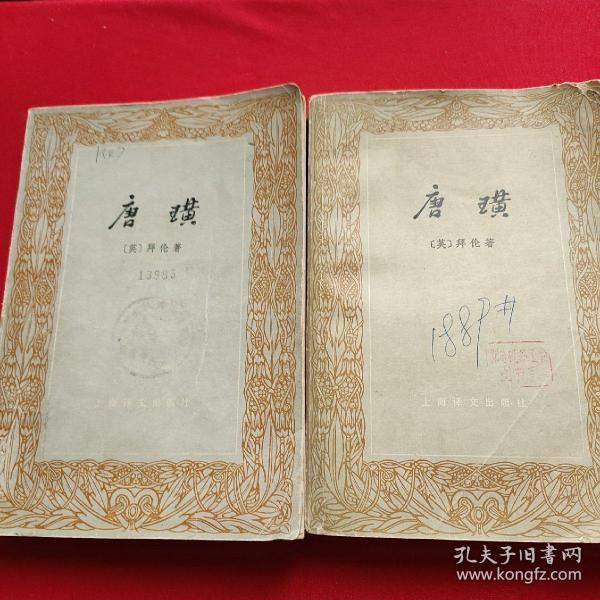 唐璜
〔英〕拜伦著
13995
上海译文出版社
唐璜
〔英〕拜伦著
上海译文出版社
孔夫子旧书网
www.kongfz.com